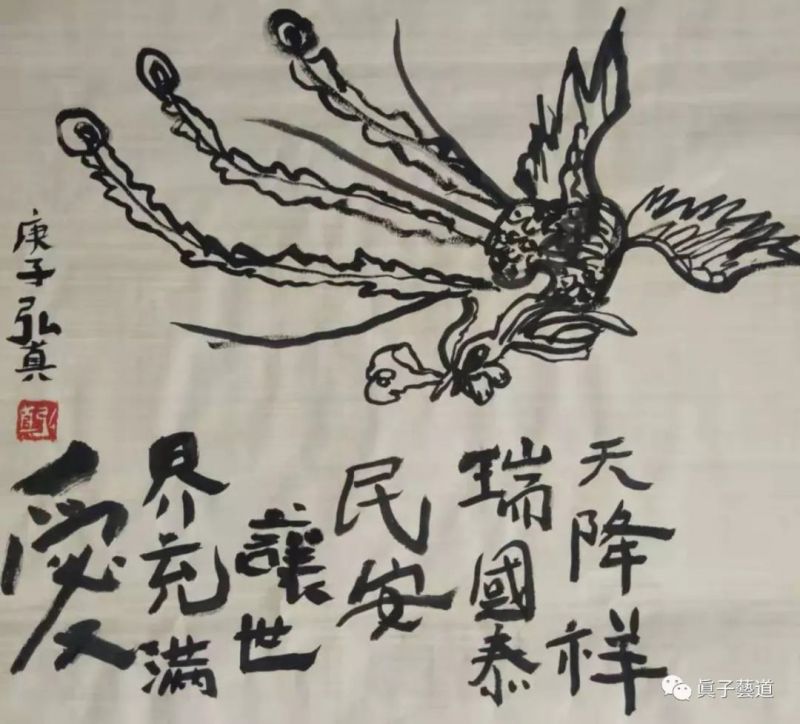 天降祥
瑞國泰
民安
讓世
界充满
愛
庚子弘真
弘真
眞子藝道